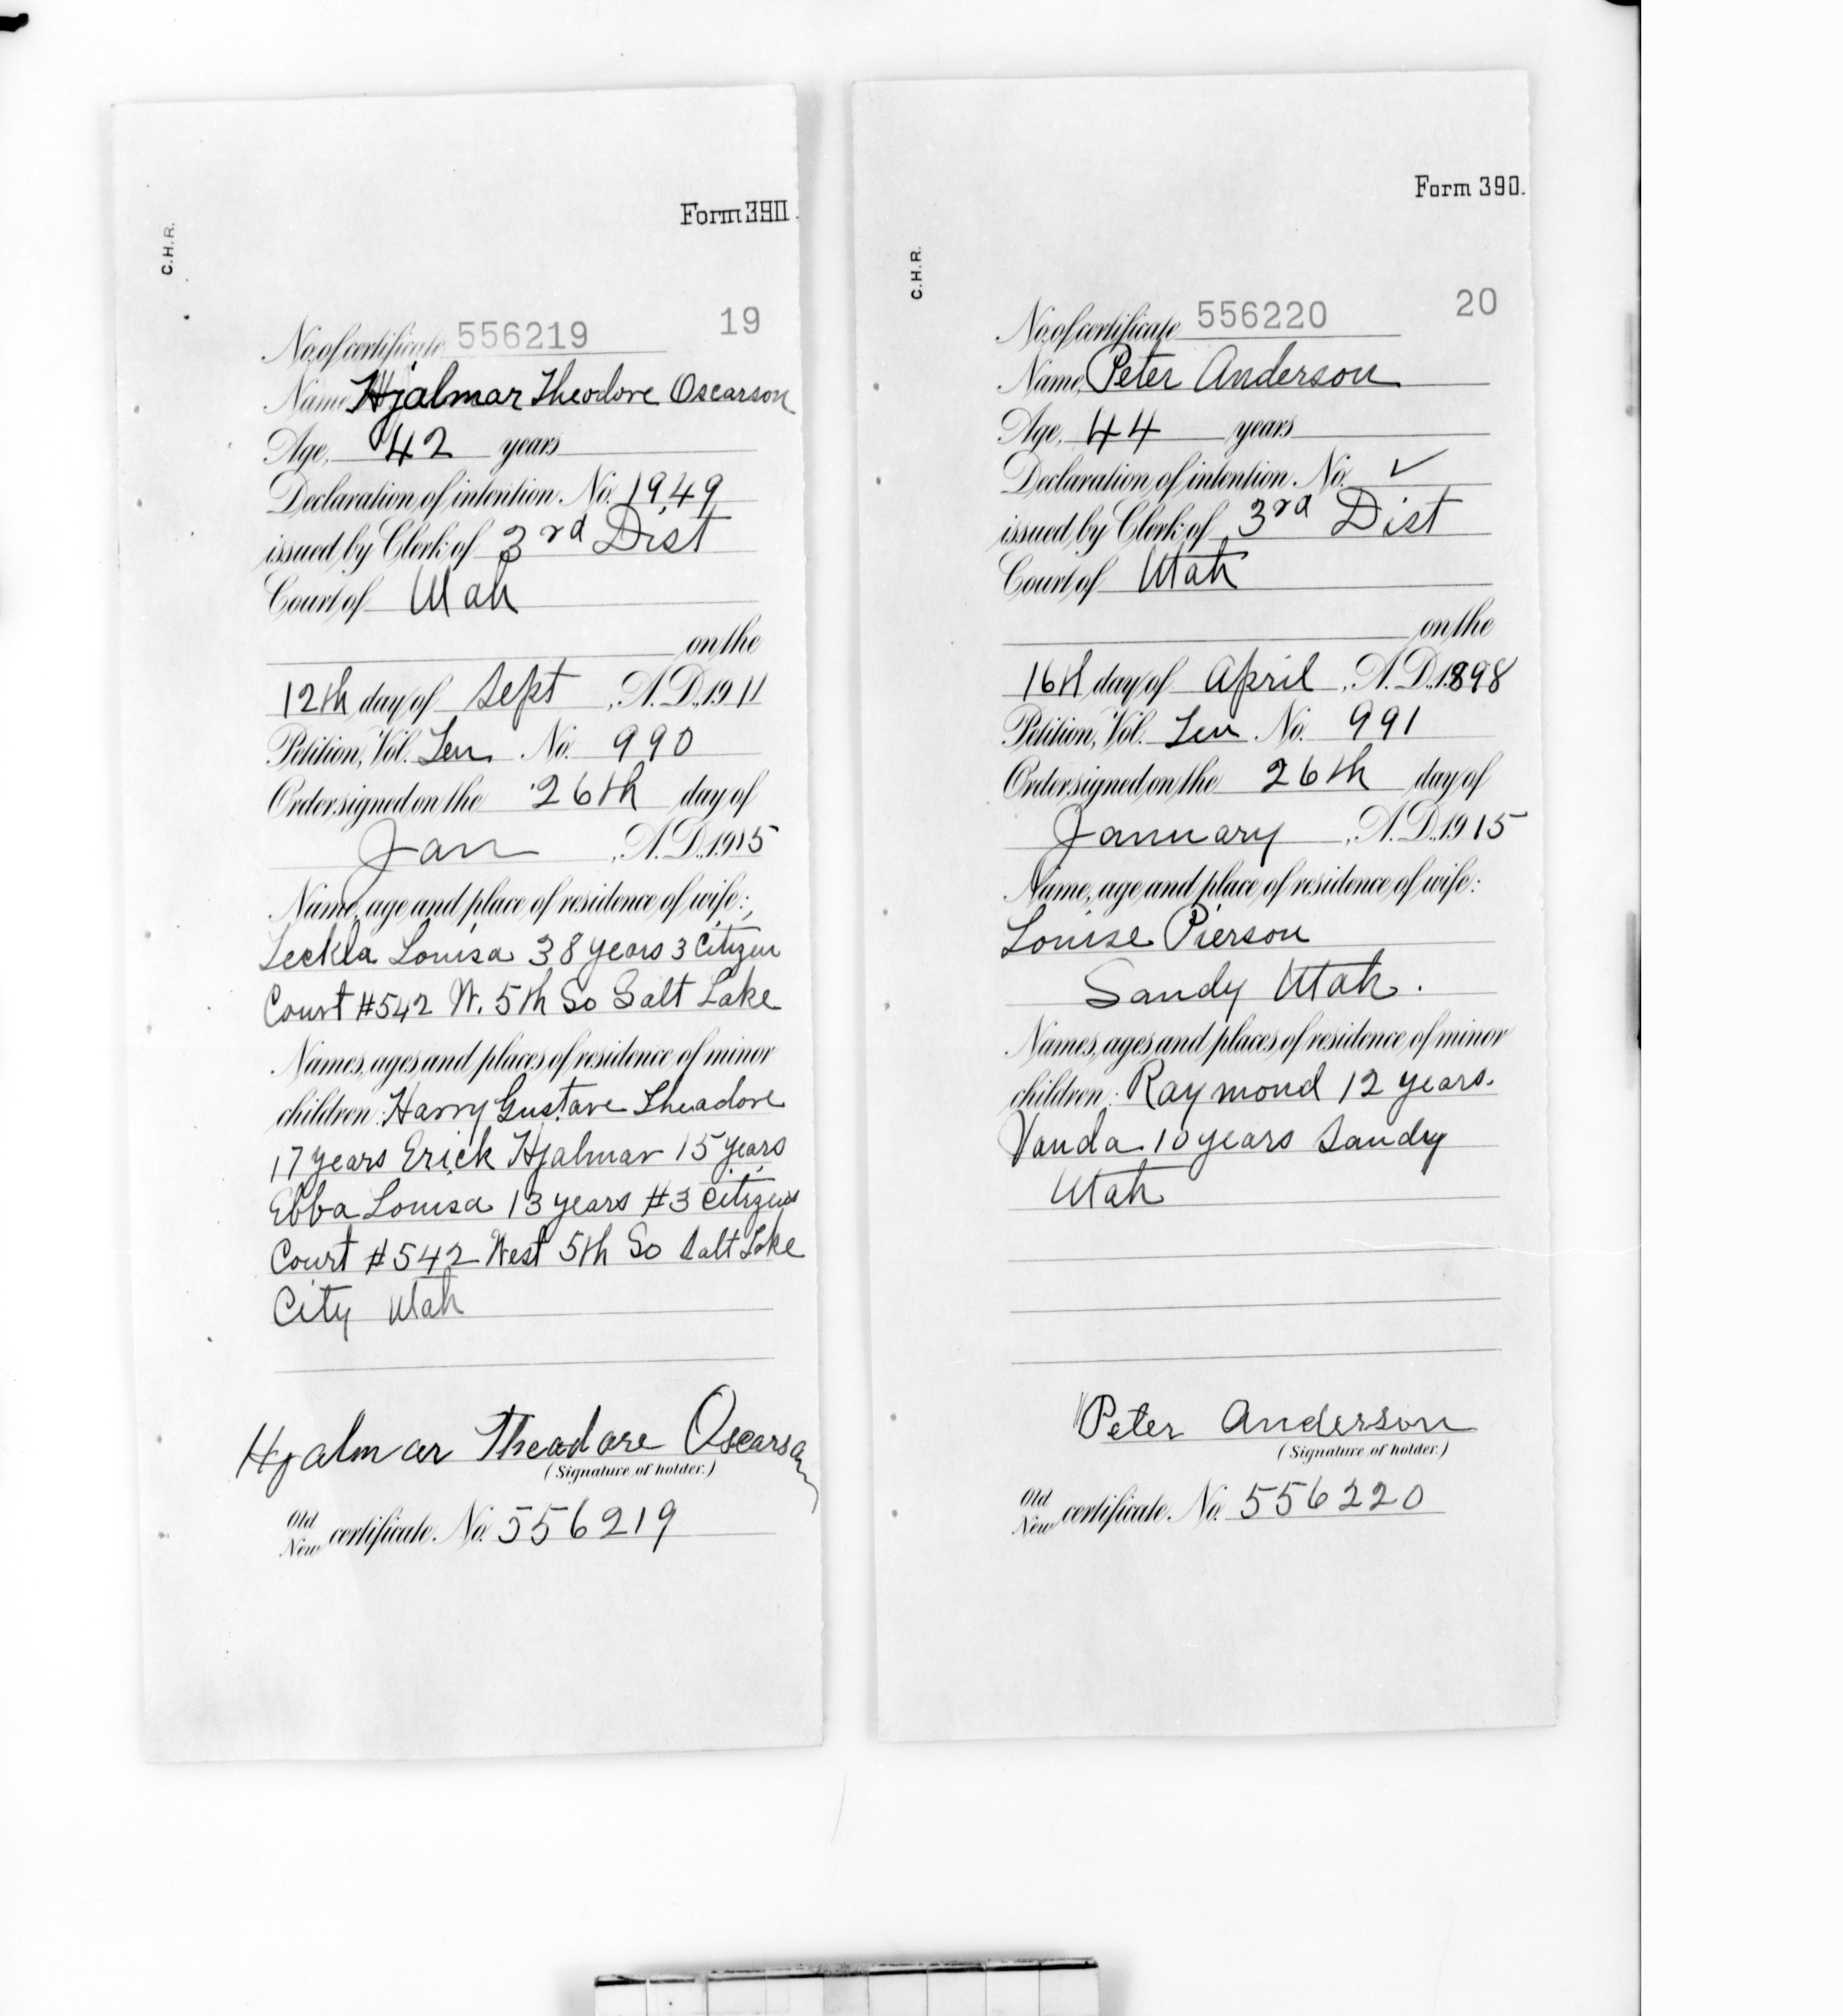 Form 390.
C.H.R.
No. of certificate 556219 19
Name, Hjalmar Theodore Oscarson
Age, 42 years
Declaration of intention No. 1949
issued by Clerk of 3rd Dist
Court of Utah
on the
12th day of Sept, A.D. 1911
Petition, Vol. Ten No. 990
Order signed on the 26th day of
Jan, A.D. 1915
Name, age and place of residence of wife:
Teckla Louisa 38 years 3 Citizen
Court #542 W. 5th So Salt Lake
Names, ages and places of residence of minor
children: Harry Gustave Theadore
17 years Erick Hjalmar 15 years
Ebba Louisa 13 years #3 Citizens
Court #542 West 5th So Salt Lake
City Utah
Hjalmar Theadore Oscarson
(Signature of holder.)
Old
New certificate No. 556219
Form 390.
C.H.R.
No. of certificate 556220 20
Name, Peter Anderson
Age, 44 years
Declaration of intention No. ✓
issued by Clerk of 3rd Dist
Court of Utah
on the
16th day of April, A.D. 1898
Petition, Vol. Ten No. 991
Order signed on the 26th day of
January, A.D. 1915
Name, age and place of residence of wife:
Louise Pierson
Sandy Utah.
Names, ages and places of residence of minor
children: Raymond 12 years.
Vanda 10 years Sandy
Utah
Peter Anderson
(Signature of holder.)
Old
New certificate No. 556220